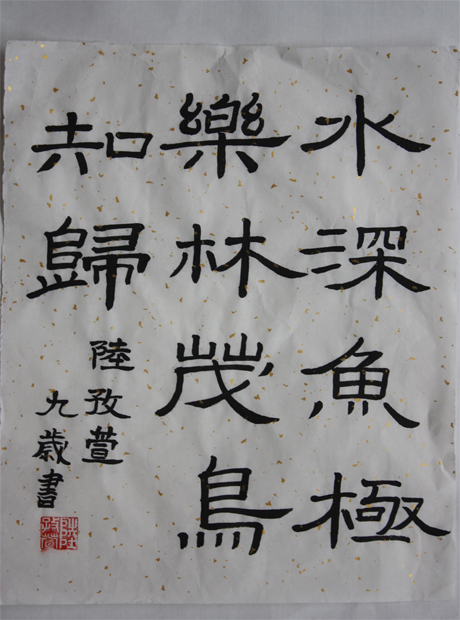 水深魚極
樂林茂鳥
知歸
陸孜萱
九歲書